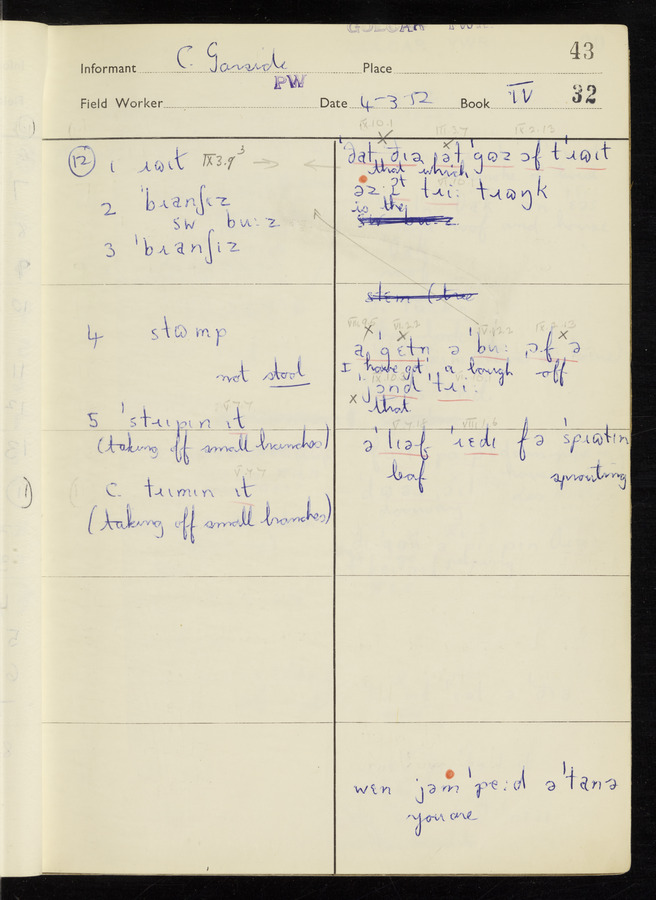 43
Informant C. Garside Place
PW
Field Worker Date 4-3-52 Book IV 32
⑫ 1 ɹωit IX 3.9³
2 ˈbɹanʃɛz
sw buːz
3 ˈbɹanʃiz
4 stωmp
not stool
5 ˈstɹipin it
(taking off small branches)
C. tɹimin it
(taking off small branches)
ˈðat ðiz ət ˈgoz ɔf tˈɹωit
that which
əz tʔ tɹiː tɹωŋk
is the
a ˈgɛtn ə ˈbuː ɔf ə
I have got a bough off
ˈjɔnd ˈtɹiː
that
ə ˈliəf ˈɹɛdi fə ˈspɹωtin
leaf sprouting
wɛn jəm ˈpeːd əˈtanə
you are